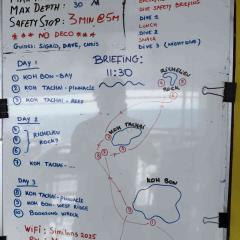 MAX DEPTH: 30 M
SAFETY STOP: 3 MIN @ 5M
*** NO DECO ***
GUIDES: SIGRID, DAVE, CHRIS
DIVE SAFETY BRIEFING
DIVE 1
LUNCH
DIVE 2
SNACK
DIVE 3
BRIEFING:
11:30
DAY 1
① KOH BON - BAY
② KOH TACHAI - PINNACLE
③ KOH TACHAI - REEF
DAY 2
④
⑤ RICHELIEU
⑥ ROCK?
⑦ KOH TACHAI -
DAY 3
⑧ KOH TACHAI - PINNACLE
⑨ KOH BON - WEST RIDGE
⑩ BOONSUNG WRECK
RICHELIEU
ROCK
KOH TACHAI
KOH BON
WiFi: Similans 2025